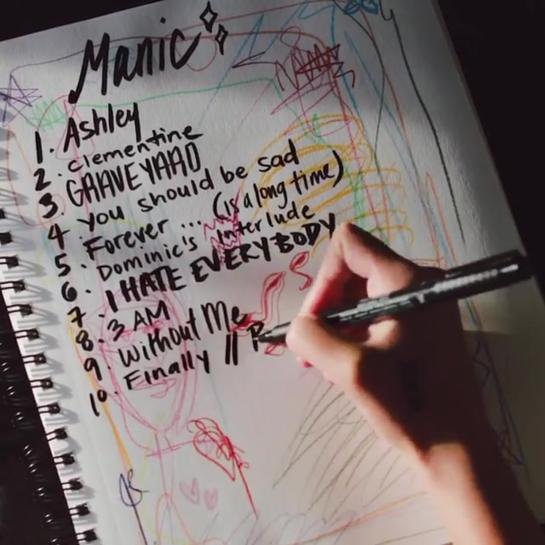 Manic
1. Ashley
2. clementine
3. GRAVEYARD
4 you should be sad
5 Forever ... (is a long time)
6. Dominic's interlude
7. I HATE EVERYBODY
8. 3 AM
9. Without Me
10. Finally //